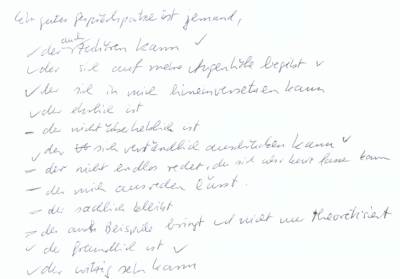 Ein guter Gesprächspartner ist jemand,
✓ der auch zuhören kann ✓
✓ der sich auf meine Augenhöhe begibt ✓
✓ der sich in mich hineinversetzen kann
✓ der ehrlich ist
– der nicht überheblich ist
✓ der sich verständlich ausdrücken kann ✓
– der nicht endlos redet, der sich aber kurz fassen kann
– der mich ausreden lässt.
– der sachlich bleibt
– der auch Beispiele bringt und nicht nur theoretisiert
✓ der freundlich ist ✓
✓ der witzig sein kann